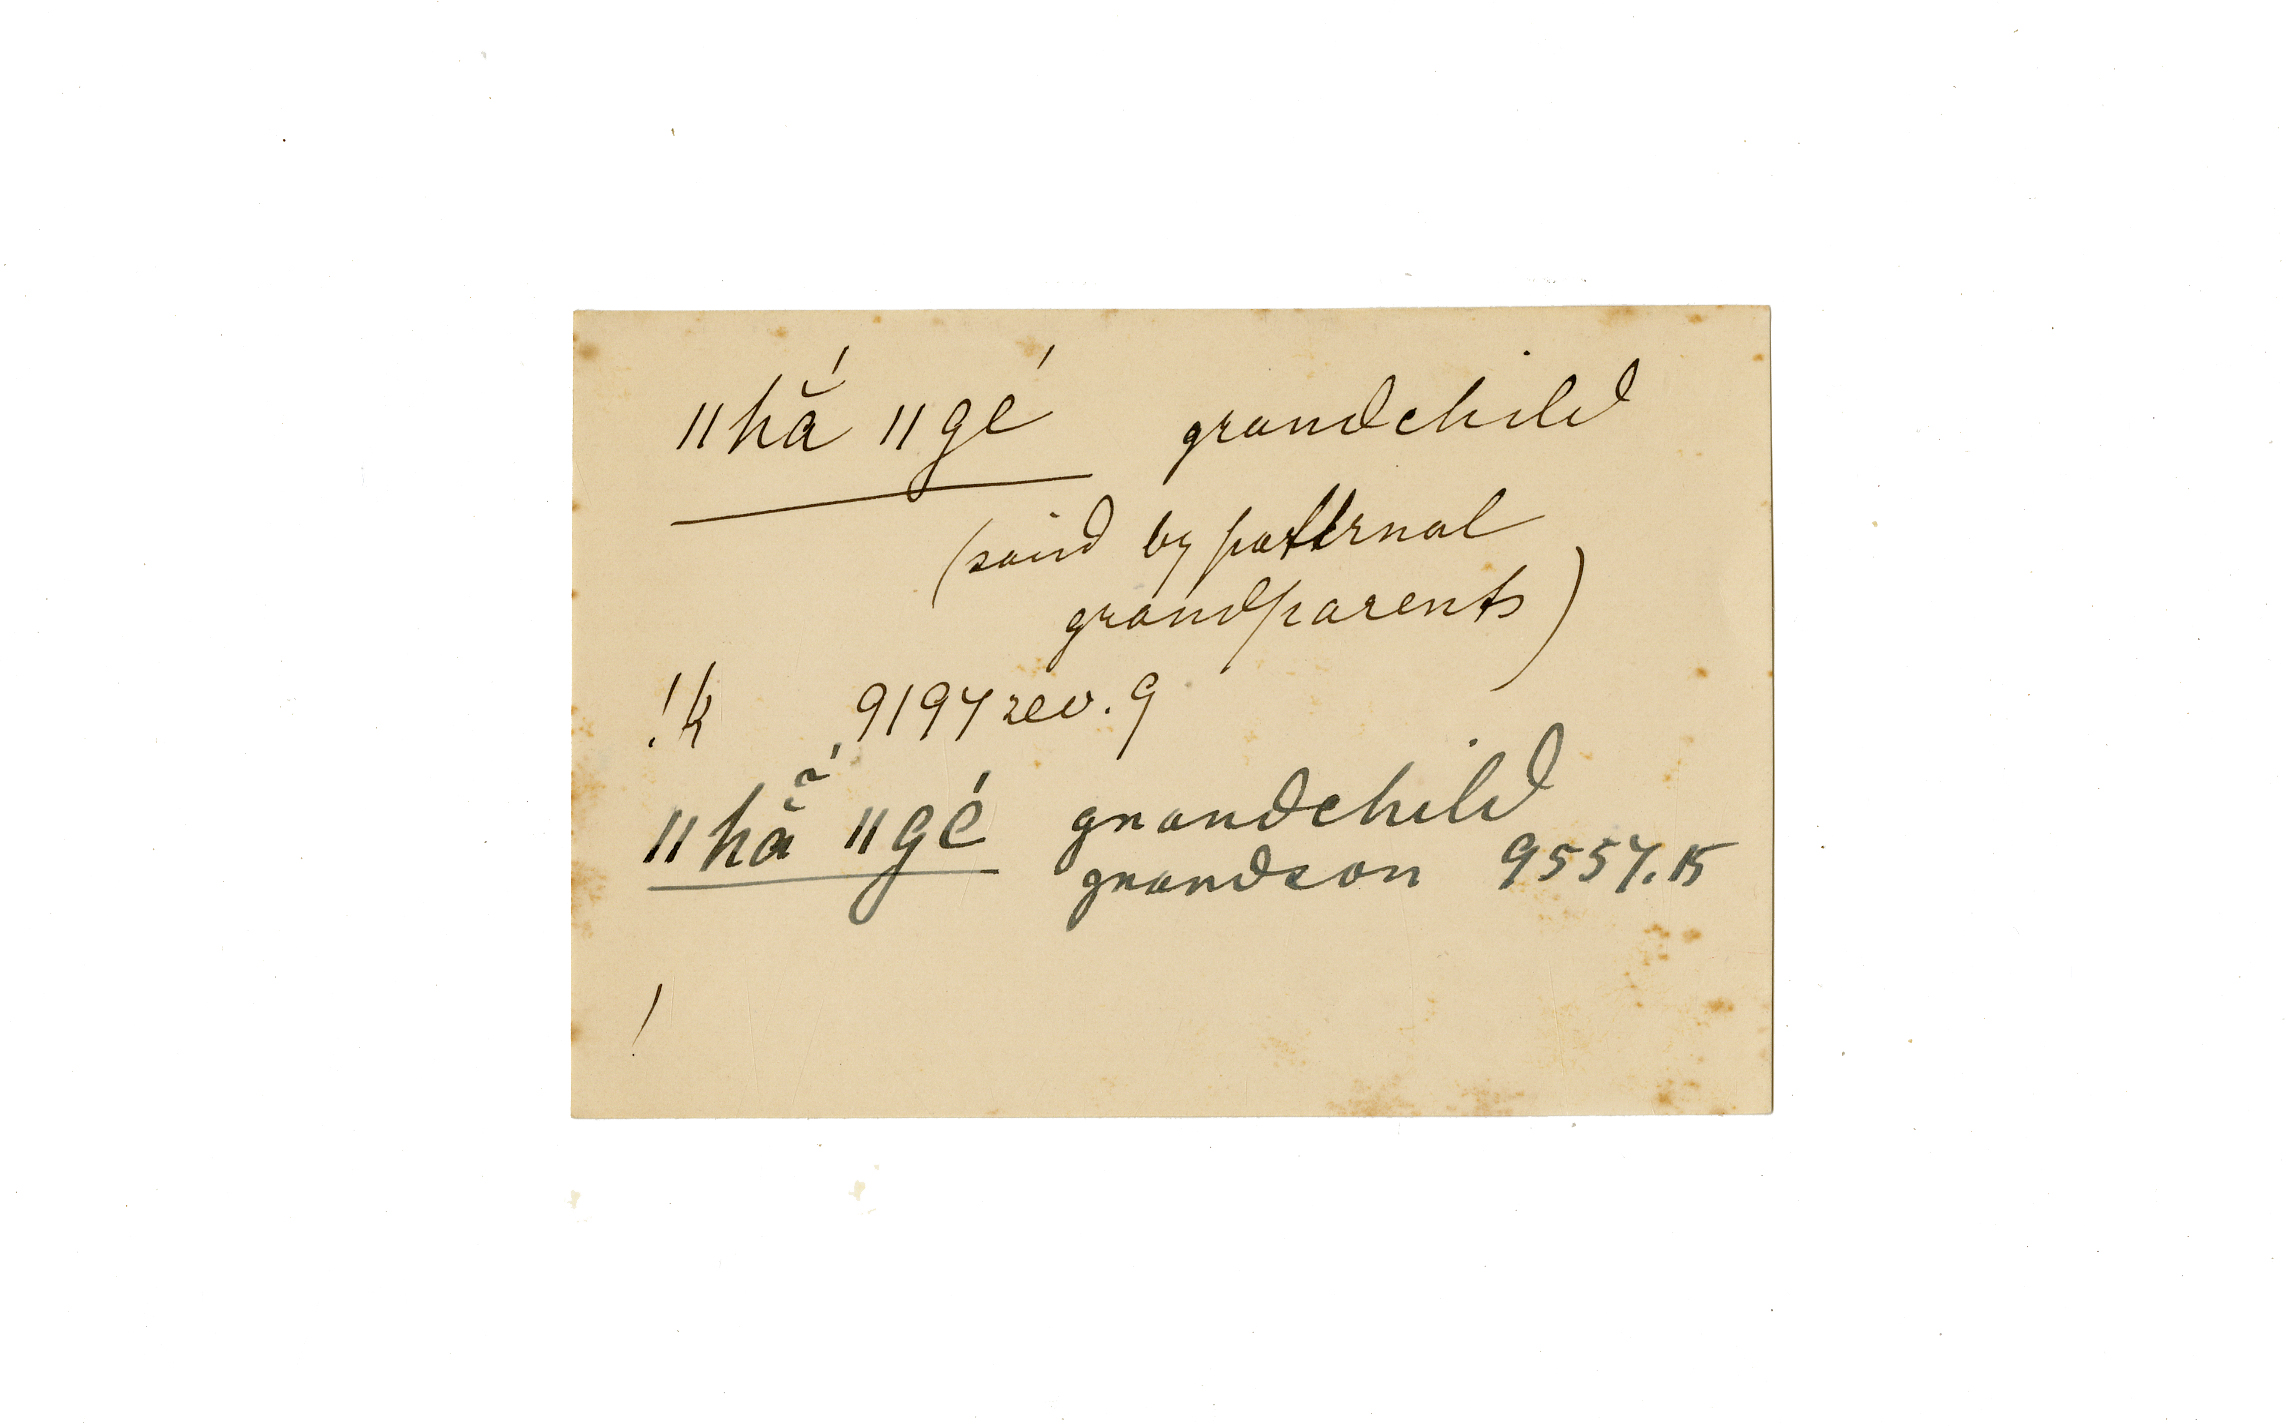 ǁhắ ǁgé grandchild
(said by paternal
grandparents)
!k 9197 rev. 9
ǁhẵ́ ǁgé grandchild
grandson 9557.15
!